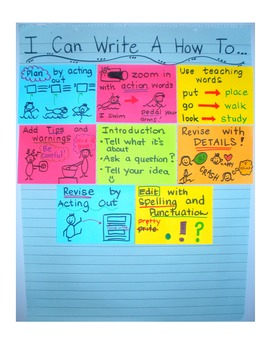 I Can Write A How To...
Plan by acting
out
zoom in
with action words
I swim
pedal your
arms!
Use teaching
words
put → place
go → walk
look → study
Add Tips and
warnings
Be
Careful!
Introduction
• Tell what it's
about
• Ask a question?
• Tell your idea
Revise with
DETAILS!
CRASH
Revise by
Acting Out
Edit with
Spelling and
Punctuation
pretty
prite
. ! ?